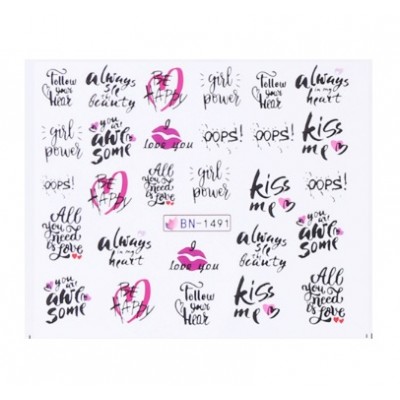 follow
your
Hear
always
see
beauty
BE
HAPPY
girl
power
follow
your
Hear
always
in my
heart
girl
power
you are
awe
some
I
love you
OOPS!
OOPS!
kiss
me
OOPS!
BE
HAPPY
All
you
need
is
Love
girl
power
kiss
me
OOPS!
All
you
need
is Love
always
in my
heart
BN-1491
I
love you
always
see
beauty
kiss
me
you are
awe
some
you are
awe
some
BE
HAPPY
follow
your
Hear
kiss
me
All
you
need
is Love